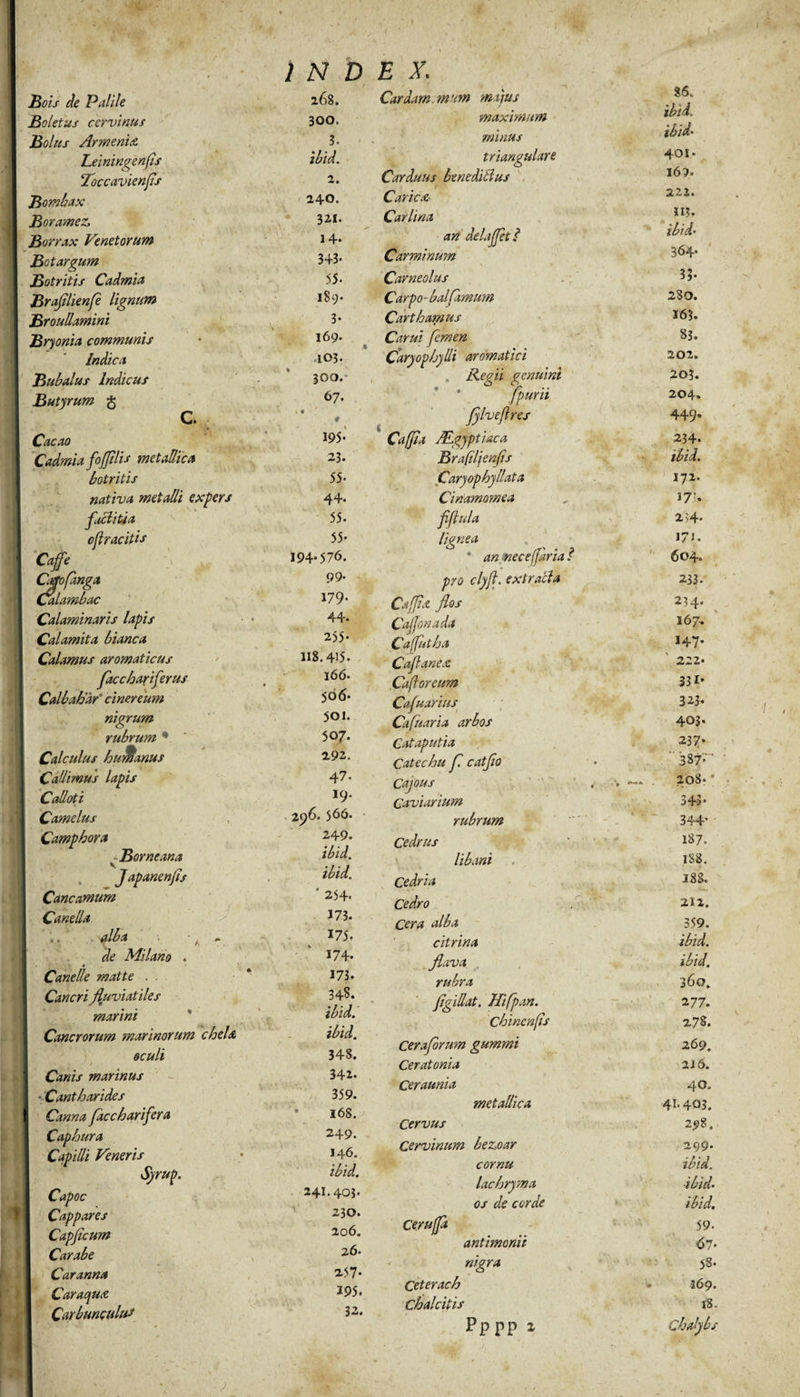 INDEX.
Bois de Palile 268.
Boletus cervinus 300.
Bolus Armeniæ 3.
Leiningensis ibid.
Toccaviensis 2.
Bombax 240.
Boramez 321.
Borrax Venetorum 14.
Botargum 343.
Botritis Cadmia 55.
Brasiliense lignum 189.
Broullamini 3.
Bryonia communis 169.
Indica 103.
Bubalus Indicus 300.
Butyrum ♄ 67.
C.
Cacao 195.
Cadmia fossilis metallica 23.
botritis 55.
nativa metalli expers 44.
factitia 55.
ostracitis 55.
Caffe 194. 576.
Cajosanga 99.
Calambac 179.
Calaminaris lapis 44.
Calamita bianca 255.
Calamus aromaticus 118. 415.
sacchariferus 166.
Calbahar cinereum 506.
nigrum 501.
rubrum 507.
Calculus humanus 292.
Callimus lapis 47.
Calloti 19.
Camelus 296. 566.
Camphora 249.
Borneana ibid.
Japanensis ibid.
Cancamum 254.
Canella 173.
alba 175.
de Milano 174.
Canelle matte 173.
Cancri fluviatiles 348.
marini ibid.
Cancrorum marinorum chelæ ibid.
oculi 348.
Canis marinus 342.
Cantharides 359.
Canna saccharifera 168.
Caphura 249.
Capilli Veneris 146.
Syrup. ibid.
Capoc 241. 403.
Cappares 230.
Capsicum 206.
Carabe 26.
Caranna 257.
Caraquæ 195.
Carbunculus 32.
Cardam. mum majus 86.
maximum ibid.
minus ibid.
triangulare 401.
Carduus benedictus 169.
Caricæ 222.
Carlina 113.
an delasset? ibid.
Carminum 364.
Carneolus 33.
Carpo-balsamum 280.
Carthamus 163.
Carui semen 83.
Caryophylli aromatici 202.
Regii genuini 203.
spurii 204.
sylvestres 449.
Cassia Ægyptiaca 234.
Brasiljensis ibid.
Caryophyllata 172.
Cinamomea 171.
fistula 234.
lignea 171.
an necessaria? 604.
pro clyst. extracta 233.
Cassiæ flos 234.
Cassonada 167.
Cassutha 147.
Castaneæ 222.
Castoreum 331.
Casuarius 323.
Casuaria arbos 403.
Cataputia 237.
Catechu s. catsjo 387.
Cajous 208.
Caviarium 343.
rubrum 344.
Cedrus 187.
libani 188.
Cedria 188.
Cedro 212.
Cera alba 359.
citrina ibid.
flava ibid.
rubra 360.
sigillat. Hispan. 277.
Chinensis 278.
Cerasorum gummi 269.
Ceratonia 216.
Ceraunia 40.
metallica 41. 403.
Cervus 298.
Cervinum bezoar 299.
cornu ibid.
lachryma ibid.
os de corde ibid.
Cerussa 59.
antimonii 67.
nigra 58.
Ceterach 169.
Chalcitis 18.
Pppp 2 Chalybs